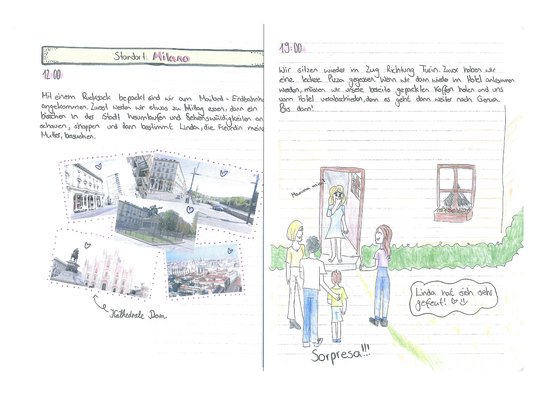 Standort: Milano
12:00
Mit einem Rucksack bepackt sind wir am Mailand - Erdbahnhof
angekommen. Zuerst werden wir etwas zu Mittag essen, dann ein
bisschen in der Stadt herumlaufen & Sehenswürdigkeiten an-
schauen, shoppen und dann bestimmt Linda, die Freundin meiner
Mutter, besuchen.
Kathedrale Dom
19:00
Wir sitzen wieder im Zug Richtung Turin. Zuvor haben wir
eine leckere Pizza gegessen. Wenn wir dann wieder im Hotel ankommen
werden, müssen wir unsere bereits gepackten Koffer holen und uns
vom Hotel verabschieden, dann es geht dann weiter nach Genua.
Bis dann!
Mamma mia!
Linda hat sich sehr
gefreut!
Sorpresa!!!